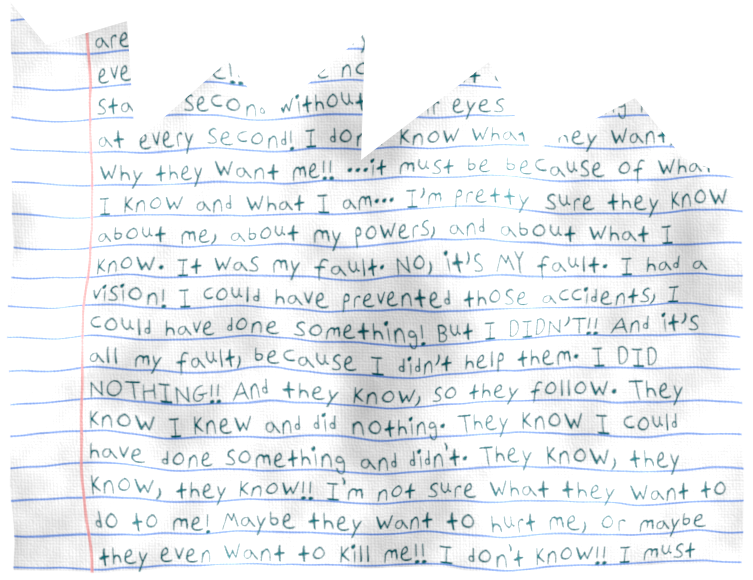 are
eve
sta second without eyes
at every second! I don know what they want.
Why they want me!! ...it must be because of what
I know and what I am... I'm pretty sure they know
about me, about my powers, and about what I
know. It was my fault. NO, it's MY fault. I had a
vision! I could have prevented those accidents, I
could have done something! But I DIDN'T!! And it's
all my fault, because I didn't help them. I DID
NOTHING!! And they know, so they follow. They
know I knew and did nothing. They know I could
have done something and didn't. They know, they
know, they know!! I'm not sure what they want to
do to me! Maybe they want to hurt me, or maybe
they even want to kill me!! I don't know!! I must